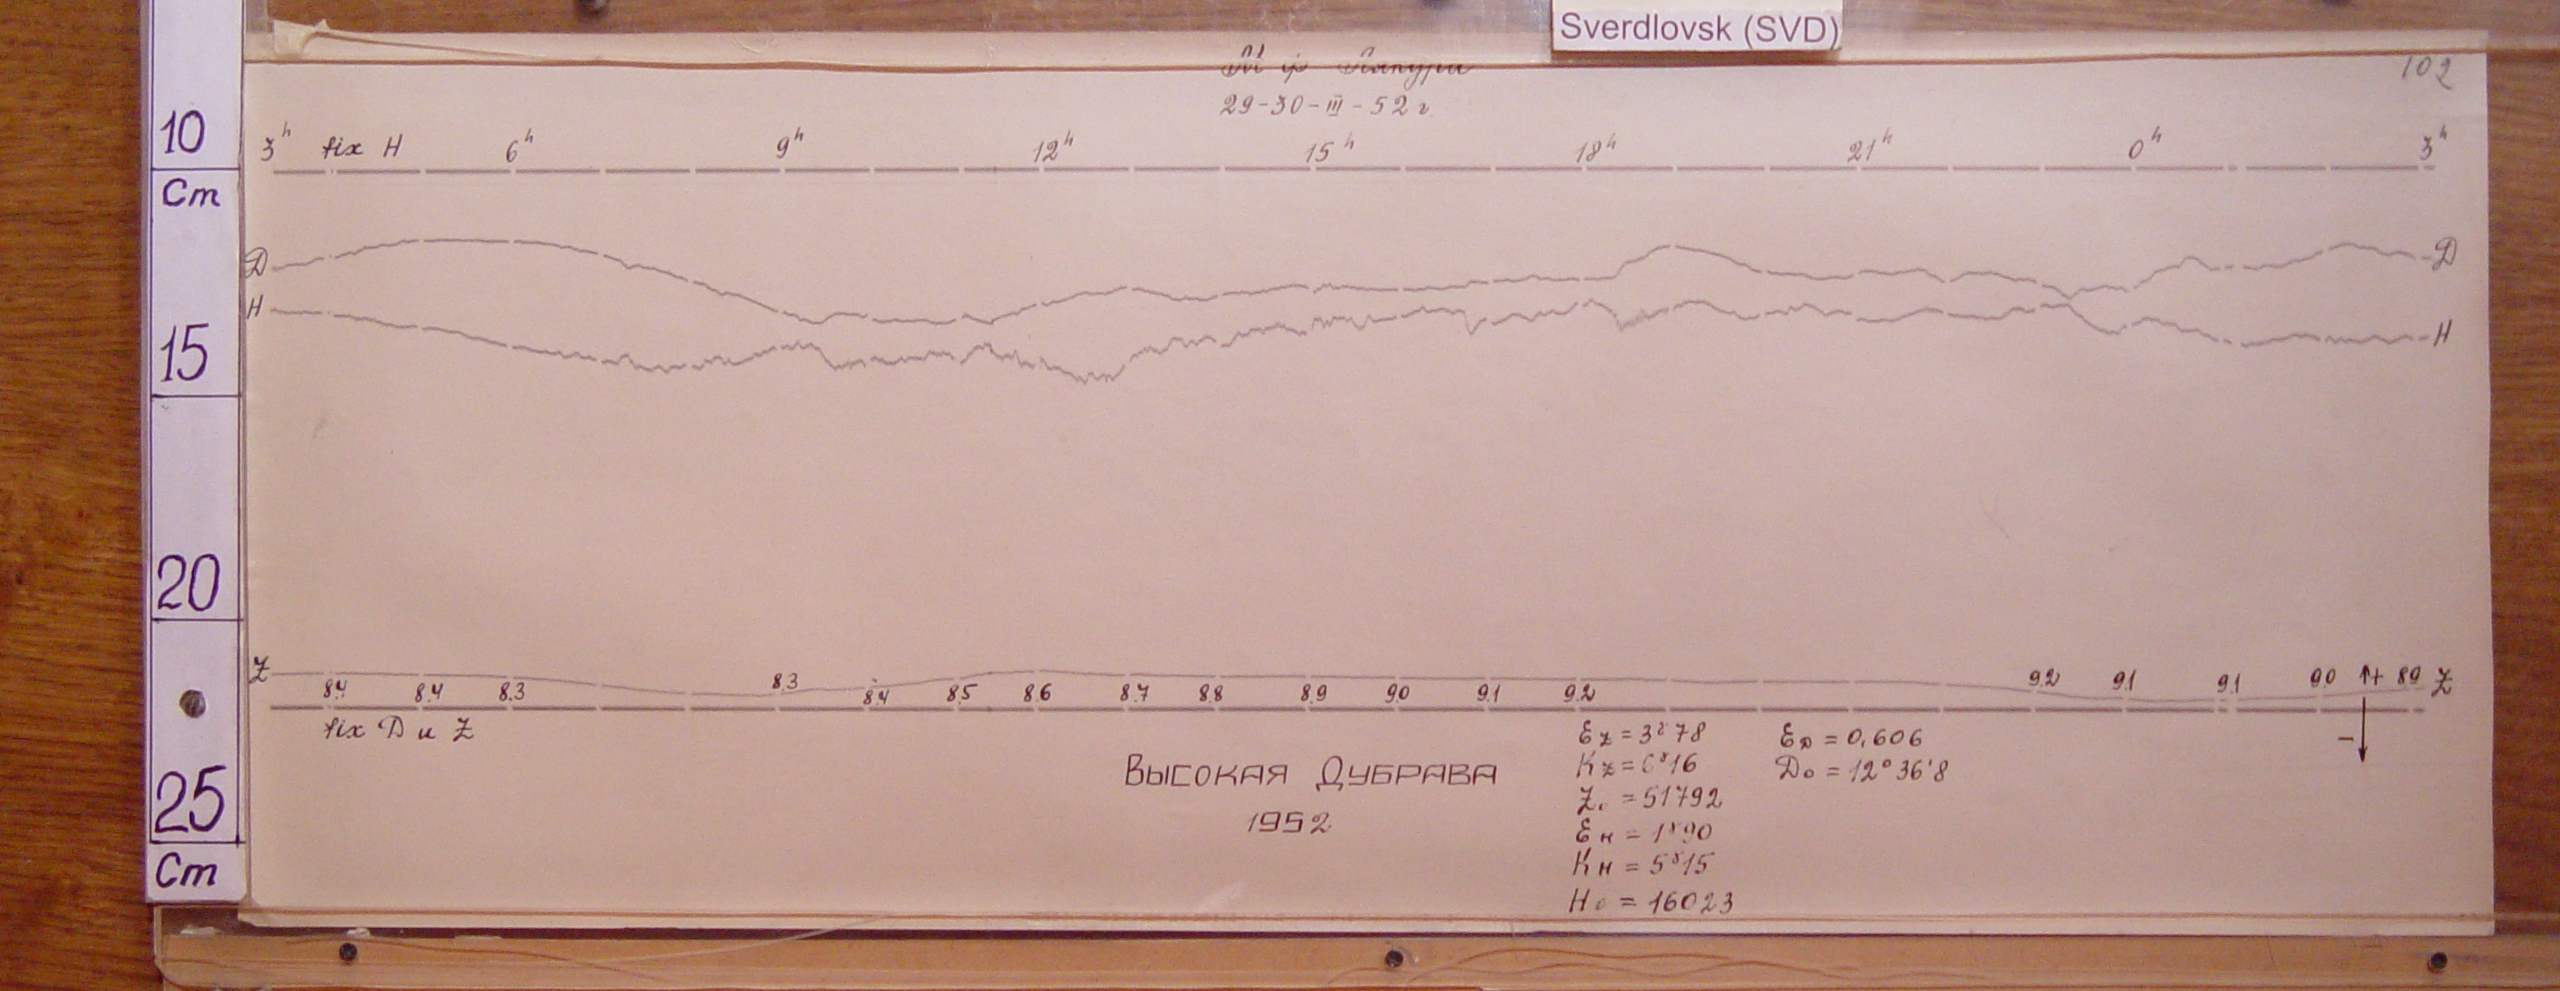 Sverdlovsk (SVD)
102
29-30-III-52 г.
10
Cm
15
20
25
Cm
3h fix H 6h 9h 12h 15h 18h 21h 0h 3h
Д Д
H H
Z 8.4 8.4 8.3 8.3 8.4 8.5 8.6 8.7 8.8 8.9 9.0 9.1 9.2 9.2 9.1 9.1 9.0 ↑+ 8.9 Z
fix Д и Z
–
Высокая Дубрава
1952
Ez = 3γ78
Kz = 6γ16
Z0 = 51792
EH = 1γ90
KH = 5γ15
H0 = 16023
EД = 0,606
Д0 = 12°36'8